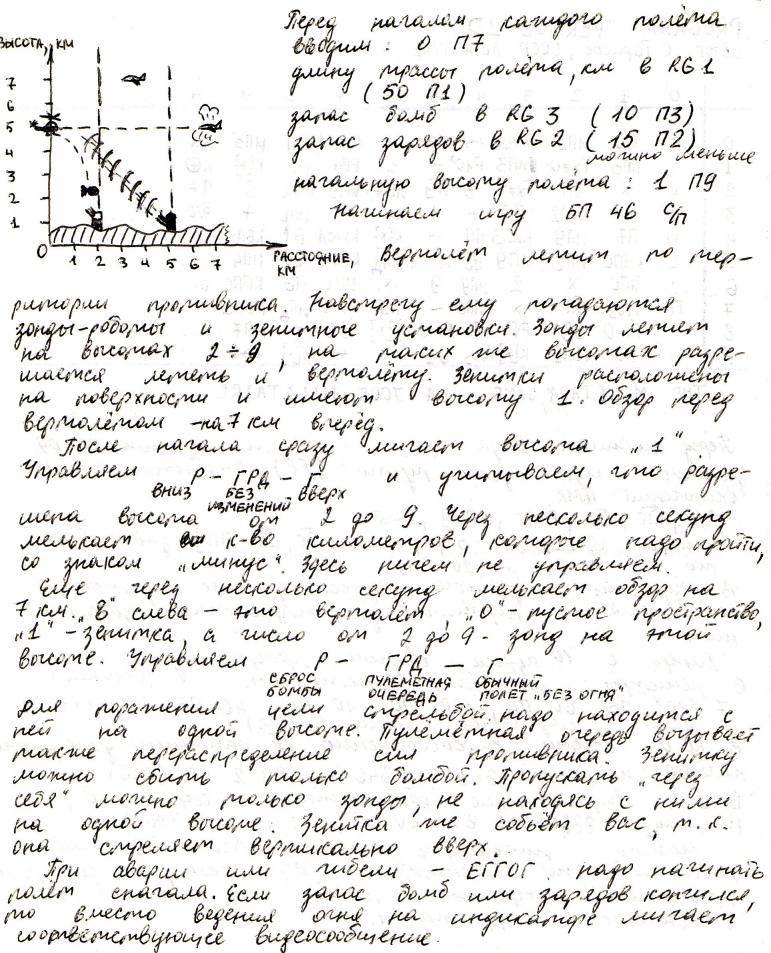 Перед началом каждого полёта
ВЫСОТА, КМ
вводим: 0 П7
длину трассы полёта, км в RG1
(50 П1)
запас бомб в RG3 (10 П3)
запас зарядов в RG2 (15 П2)
можно меньше
начальную высоту полёта: 1 П9
Начинаем игру БП 46 С/П
7
6
5
4
3
2
1
0
1 2 3 4 5 6 7
РАССТОЯНИЕ, КМ
Вертолёт летит по тер-
ритории противника. Навстречу ему попадаются
зонды-роботы и зенитные установки. Зонды летят
на высотах 2÷9, на таких же высотах разре-
шается лететь и вертолёту. Зенитки расположены
на поверхности и имеют высоту 1. Обзор перед
вертолётом - на 7 км вперёд.
После начала сразу мигает высота "1"
Управляем Р - ГРД - Г и учитываем, что разре-
ВНИЗ БЕЗ ИЗМЕНЕНИЙ ВВЕРХ
шена высота от 2 до 9. Через несколько секунд
мелькает к-во километров, которое надо пройти,
со знаком "минус". Здесь ничем не управляем.
Еще через несколько секунд мелькает обзор на
7 км. "8" слева - это вертолёт, "0" - пустое пространство,
"1" - зенитка, а число от 2 до 9 - зонд на этой
высоте. Управляем Р - ГРД - Г
СБРОС БОМБЫ ПУЛЕМЕТНАЯ ОЧЕРЕДЬ ОБЫЧНЫЙ ПОЛЕТ "БЕЗ ОГНЯ"
Для поражения цели стрельбой надо находится с
ней на одной высоте. Пулемётная очередь вызывает
также перераспределение сил противника. Зенитку
можно сбить только бомбой. Пропускать "через
себя" можно только зонды, не находясь с ними
на одной высоте. Зенитка же собьёт вас, т.к.
она стреляет вертикально вверх.
При аварии или гибели - ЕГГОГ надо начинать
полёт сначала. Если запас бомб или зарядов кончился,
то вместо ведения огня на индикаторе мигает
соответствующее видеосообщение.